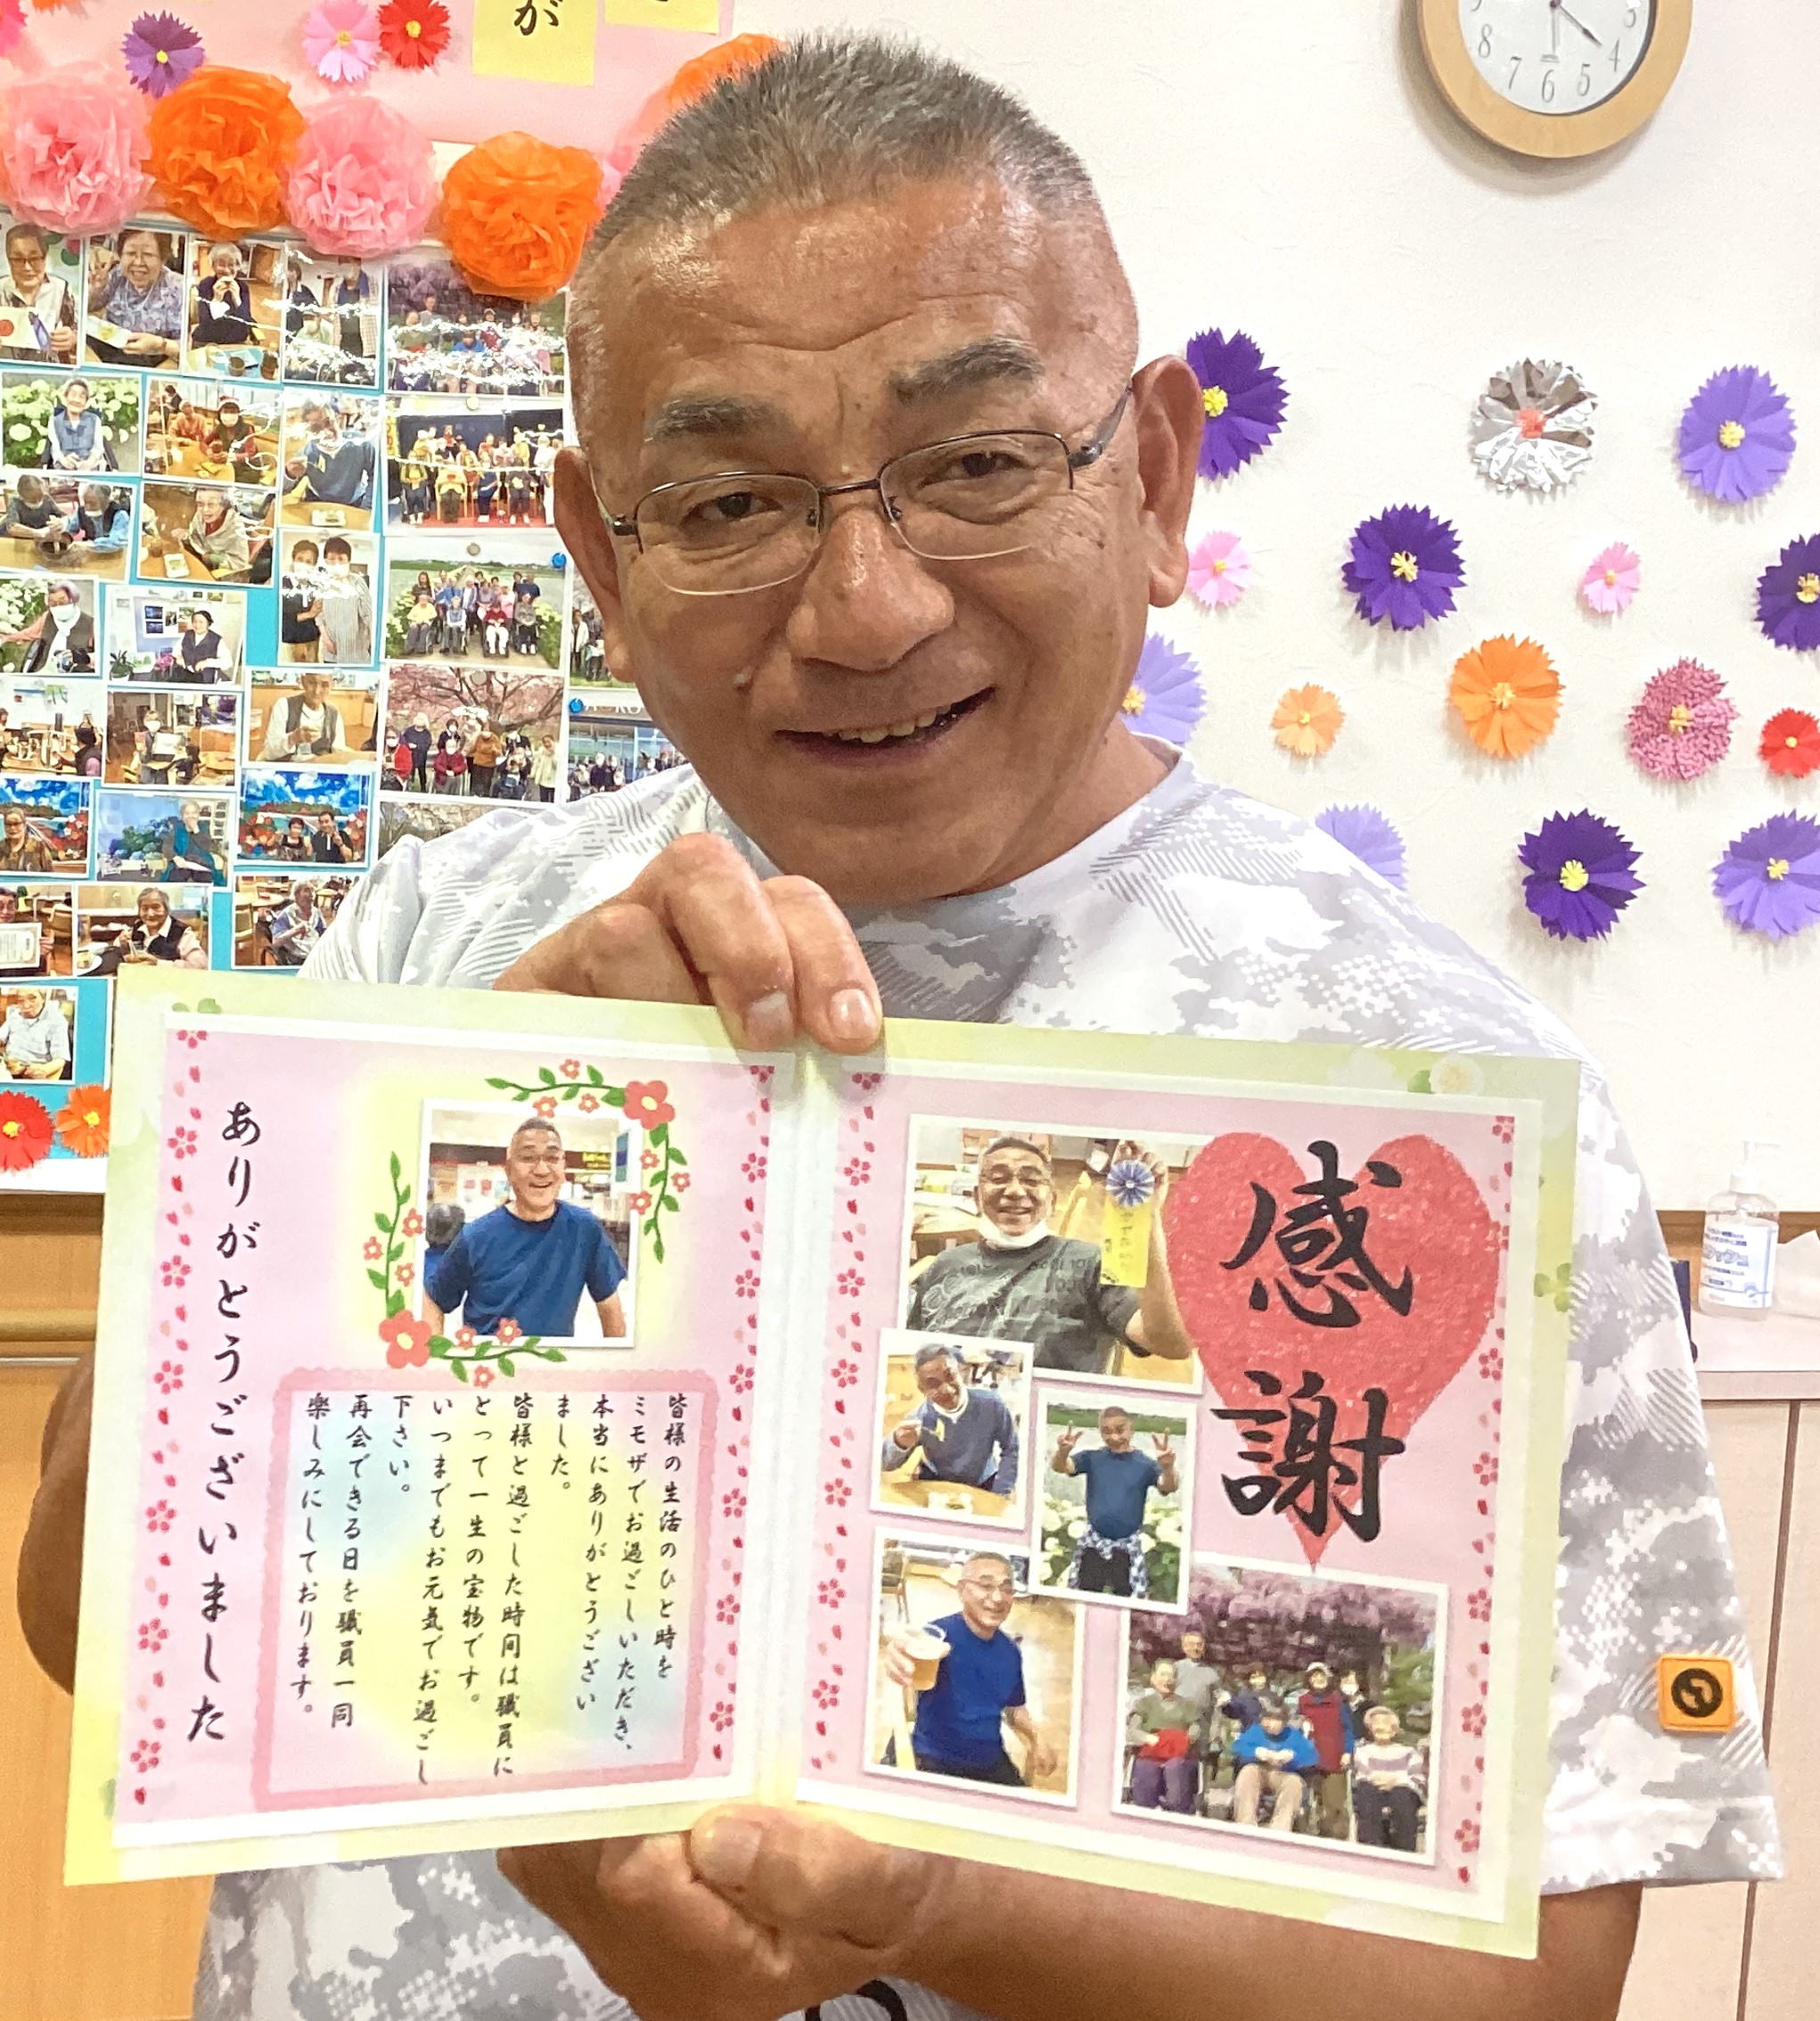 が
8
7
6
5
4
感謝
皆様の生活のひと時を
ミモザでお過ごしいただき、
本当にありがとうござい
ました。
皆様と過ごした時間は職員に
とって一生の宝物です。
いつまでもお元気でお過ごし
下さい。
再会できる日を職員一同
楽しみにしております。
ありがとうございました